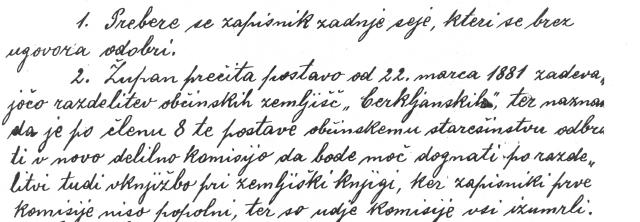 1. Prebere se zapisnik zadnje seje, kteri se brez
ugovora odobri.
2. Župan prečita postavo od 22. marca 1881 zadeva„
jočo razdelitev občinskih zemljišč „Cerkljanskih“, ter nazna
da je po členu 8 te postave občinskemu starešinstvu odbra
ti v novo delilno komisijo da bode moč dognati po razde„
litvi tudi vknjižbo pri zemljiški knjigi, ker zapisniki prve
komisije niso popolni, ter so udje komisije vsi izumrli.